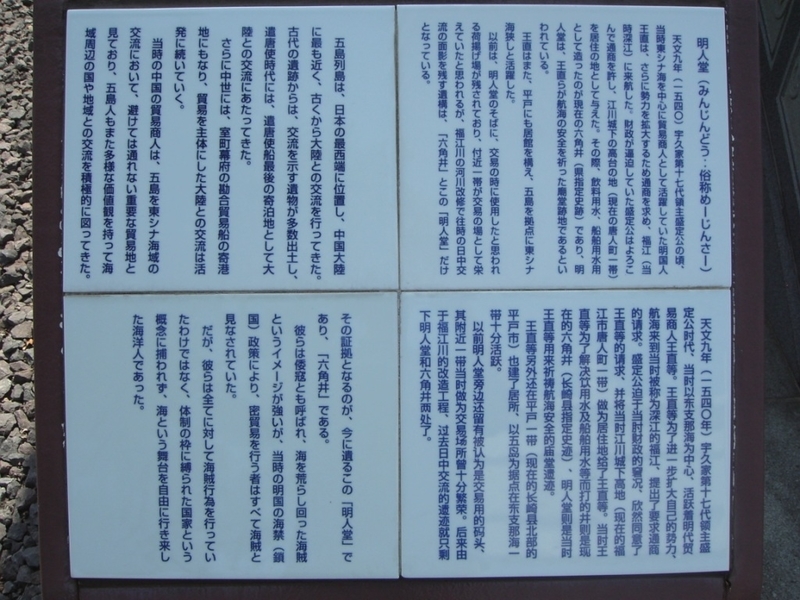 明人堂（みんじんどう：俗称めーじんさー）
天文九年（一五四〇）宇久家第十七代領主盛定公の頃、
当時東シナ海を中心に貿易商人として活躍していた明国人
王直は、さらに勢力を拡大するため通商を求め、福江（当
時深江）に来航した。財政が逼迫していた盛定公はよろこ
んで通商を許し、江川城下の高台の地（現在の唐人町一帯）
を居住の地として与えた。その際、飲料用水、船舶用水用
として造ったのが現在の六角井（県指定史跡）であり、明
人堂は、王直らが航海の安全を祈った廟堂跡地であるとい
われている。
王直はまた、平戸にも居館を構え、五島を拠点に東シナ
海狭しと活躍した。
以前は、明人堂のそばに、交易の時に使用したと思われ
る荷揚げ場が残されており、付近一帯が交易の場として栄
えていたと思われるが、福江川の河川改修で往時の日中交
流の面影を残す遺構は、「六角井」とこの「明人堂」だけ
となっている。
五島列島は、日本の最西端に位置し、中国大陸
に最も近く、古くから大陸との交流を行ってきた。
古代の遺跡からは、交流を示す遺物が多数出土し、
遣唐使時代には、遣唐使船最後の寄泊地として大
陸との交流にあたってきた。
さらに中世には、室町幕府の勘合貿易船の寄港
地にもなり、貿易を主体にした大陸との交流は活
発に続いていく。
当時の中国の貿易商人は、五島を東シナ海域の
交流において、避けては通れない重要な貿易地と
見ており、五島人もまた多様な価値観を持って海
域周辺の国や地域との交流を積極的に図ってきた。
その証拠となるのが、今に遺るこの「明人堂」で
あり、「六角井」である。
彼らは倭寇とも呼ばれ、海を荒らし回った海賊
というイメージが強いが、当時の明国の海禁（鎖
国）政策により、密貿易を行う者はすべて海賊と
見なされていた。
だが、彼らは全てに対して海賊行為を行ってい
たわけではなく、体制の枠に縛られた国家という
概念に捕われず、海という舞台を自由に行き来し
た海洋人であった。
天文九年（一五四〇年）宇久家第十七代领主盛
定公时代，当时以东支那海为中心，活跃着明代贸
易商人王直等。王直等为了进一步扩大自己的势力，
航海来到当时被称为深江的福江，提出了要求通商
的请求。盛定公迫于当时财政的窘况，欣然同意了
王直等的请求，并将当时江川城下高地（现在的福
江市唐人町一带）做为居住地给了王直等。当时王
直等为了解决饮用水及船舶用水等而打的井则是现
在的六角井（长崎县指定史迹），明人堂则是当时
王直等用来祈祷航海安全的庙堂遗迹。
王直等另外还在平户一带（现在的长崎县北部的
平户市）也建了居所，以五岛为据点在东支那海一
带十分活跃。
以前明人堂旁边还留有被认为是交易用的码头，
其附近一带当时做为交易场所曾十分繁荣。后来由
于福江川的改造工程，过去日中交流的遗迹就只剩
下明人堂和六角井两处了。